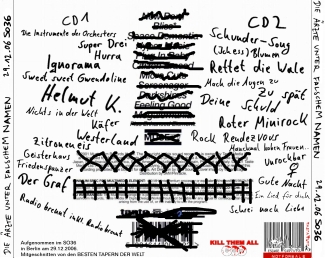 CD1
Die Instrumente des Orchesters
Super Drei
Hurra
Ignorama
Sweet Sweet Gwendoline
Helmut K.
Nichts in der Welt
Käfer
Westerland
Zitroneneis
Geisterhaus
Friedenspanzer
Der Graf
Radio brennt inkl. Radio brennt
CD2
Schunder-Song
(Ich ess) Blumen
Rettet die Wale
Mach die Augen zu
Zu spät
Deine Schuld
Roter Minirock
Rock Rendezvous
Manchmal haben Frauen...
Unrockbar
Gute Nacht
Ein Lied für dich
Schrei nach Liebe
Space Dementia
Feeling Good
Aufgenommen im SO36
in Berlin am 29.12.2006.
Mitgeschnitten von den BESTEN TAPERN DER WELT
KILL THEM ALL
NOT FOR SALE
DIE ÄRZTE UNTER FALSCHEM NAMEN 29.12.06 SO36
DIE ÄRZTE UNTER FALSCHEM NAMEN 29.12.06 SO36